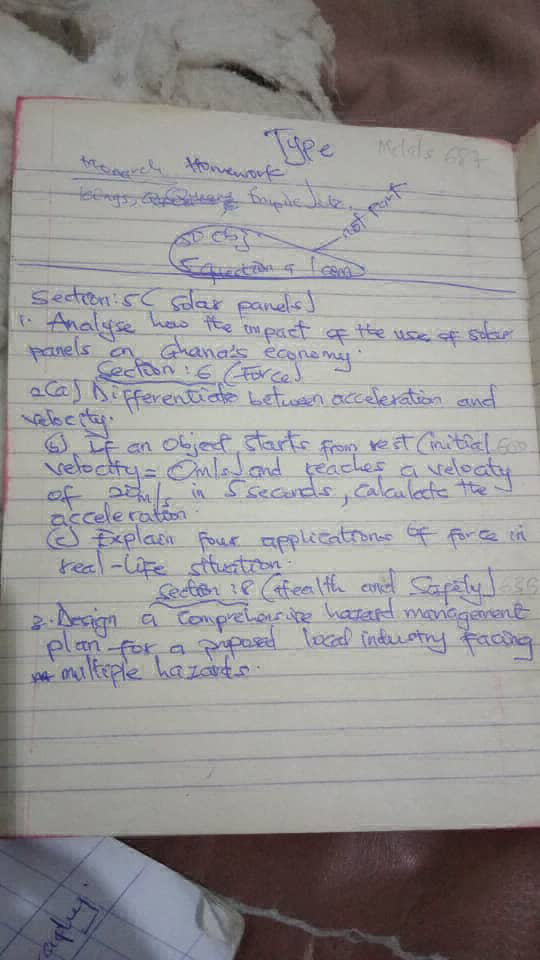 Type
Homework
not part
5 question a
Section: 5 ( Solar panels)
1. Analyse how the impact of the use of solar
panels on Ghana's economy.
Section : 6 (Force)
2(a) Differentiate between acceleration and
velocity.
(b) If an object starts from rest (initial
velocity = 0m/s) and reaches a velocity
of 20m/s in 5 seconds, calculate the
acceleration.
(c) Explain four applications of force in
real-life situation.
Section : 8 (Health and Safety)
3. Design a comprehensive hazard management
plan for a proposed local industry facing
multiple hazards.